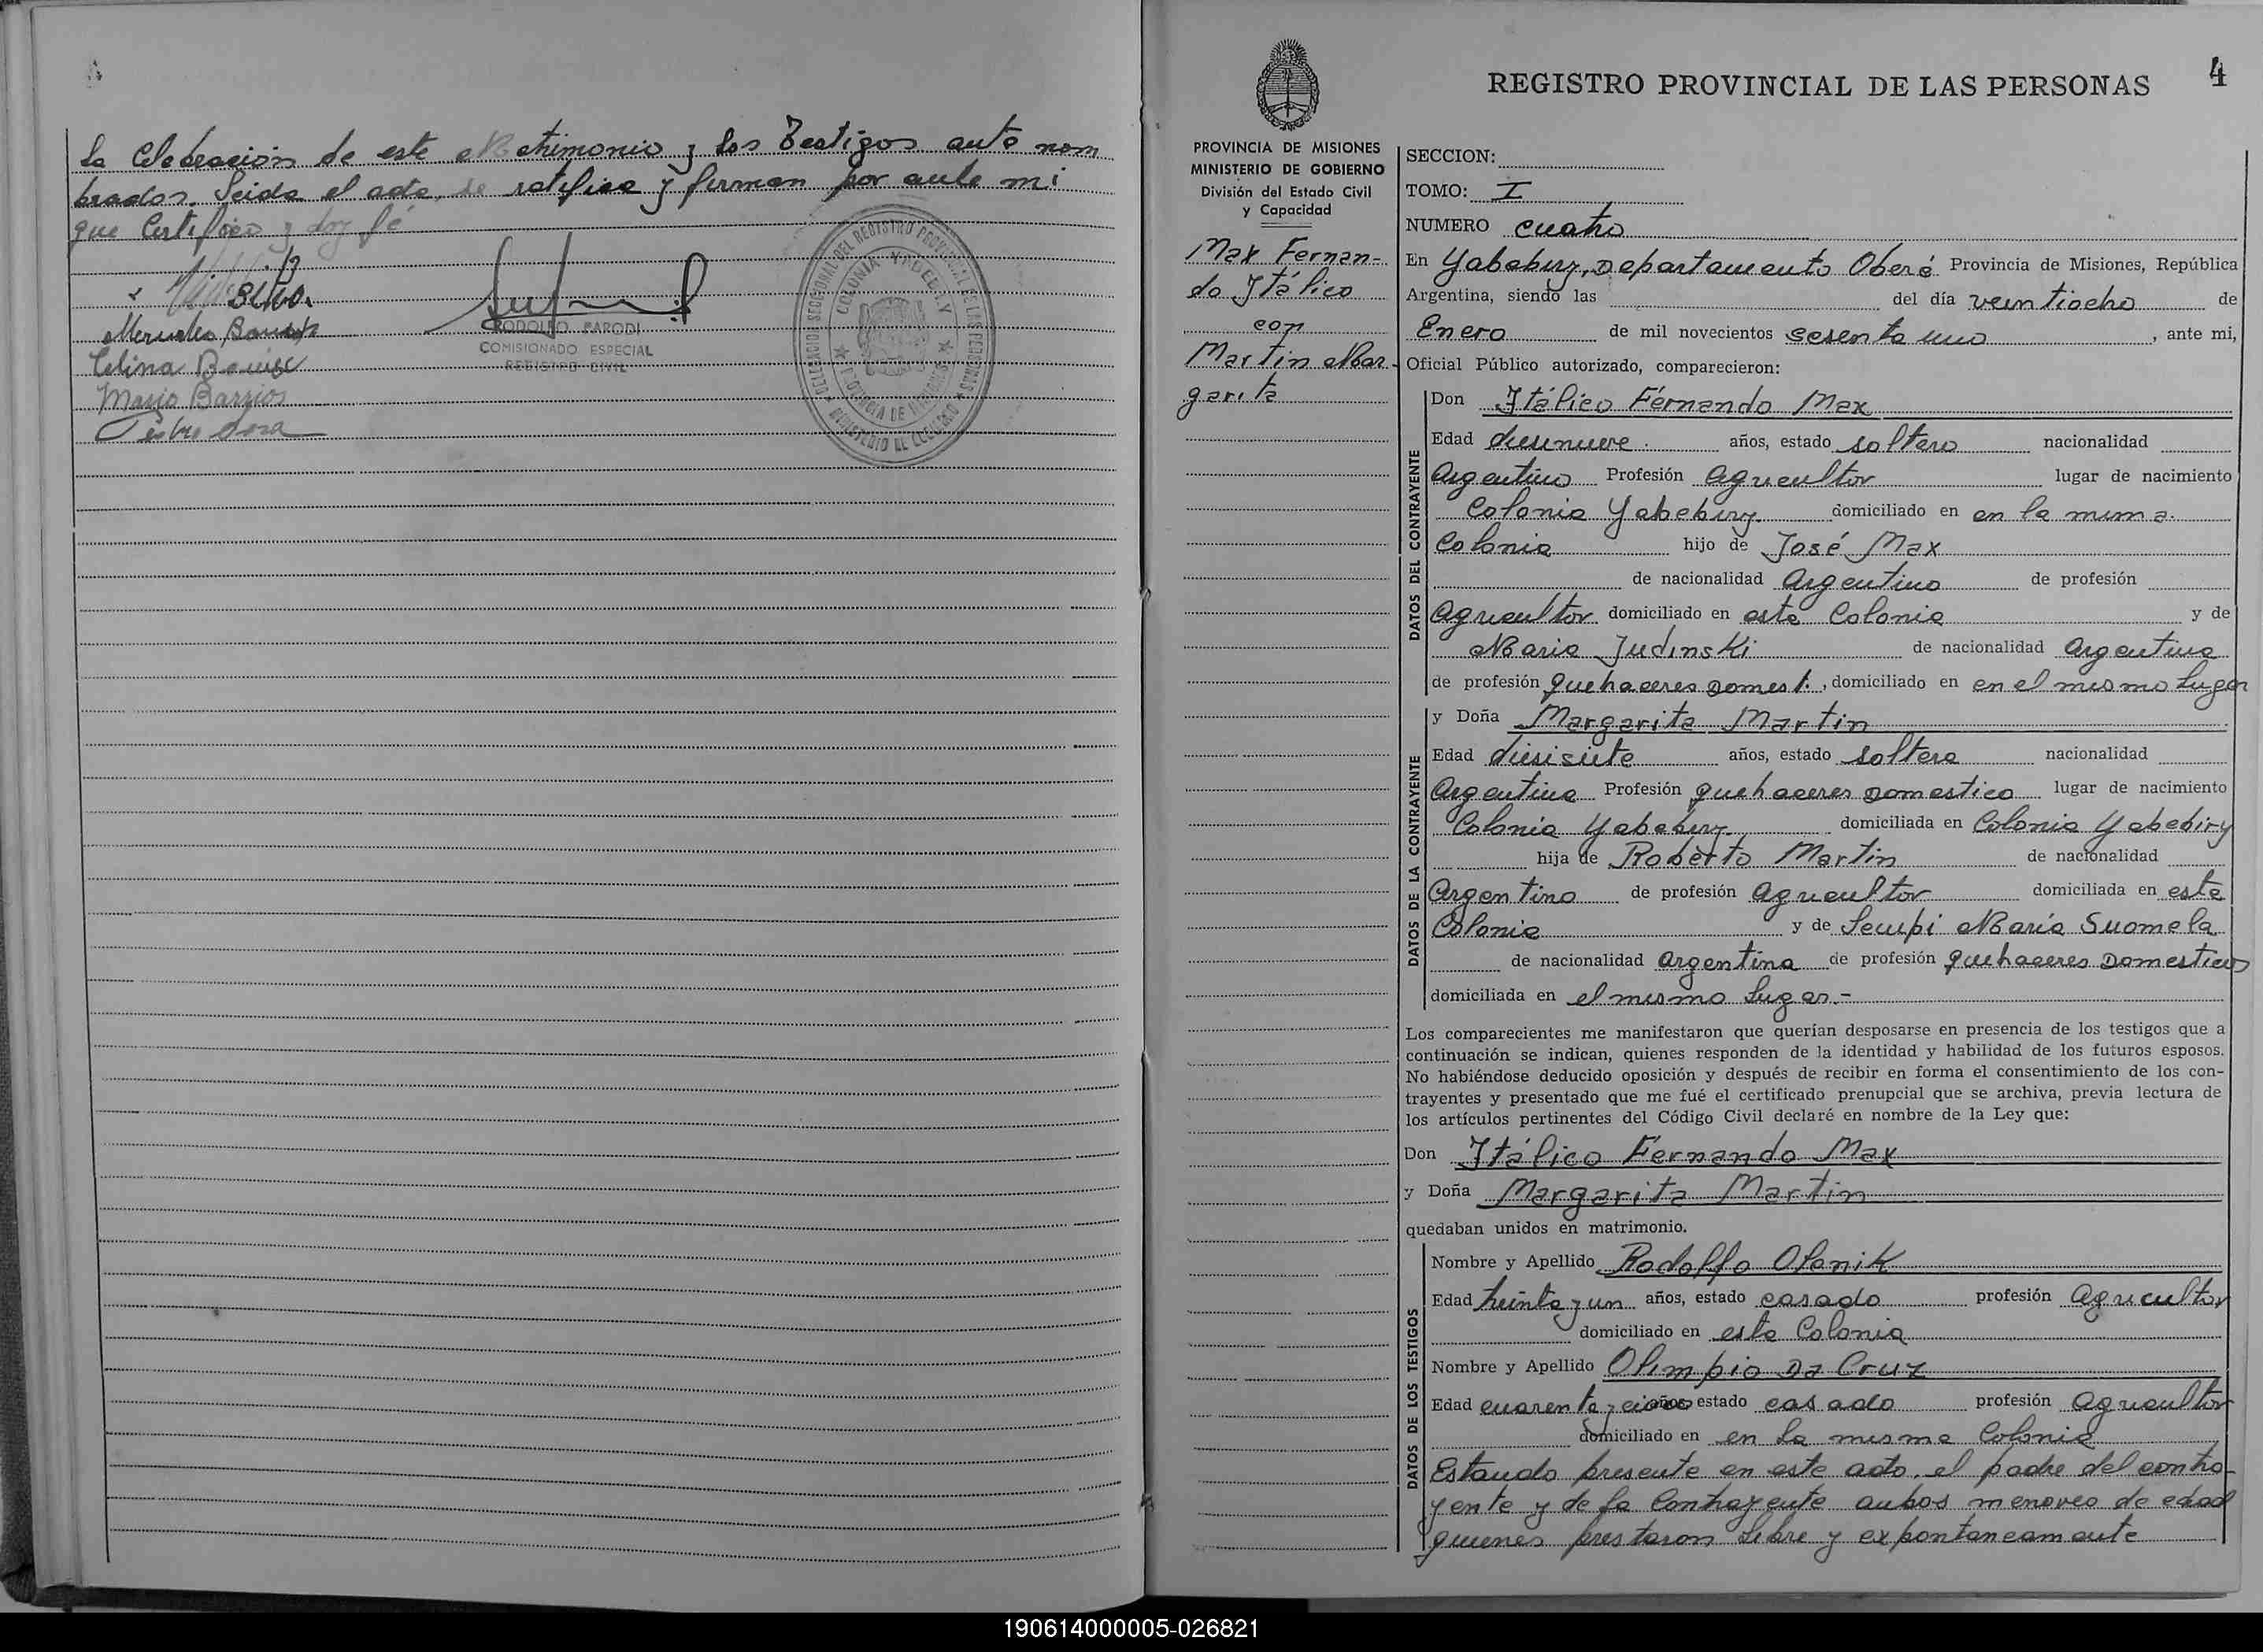 la Celebración de este Matrimonio y los Testigos ante nom
brados. Leida el acta, se ratifica y firman por ante mi
que Certifico y doy fé
Celina
Mario Barrios
RODOLFO PARODI
COMISIONADO ESPECIAL
REGISTRO CIVIL
4
REGISTRO PROVINCIAL DE LAS PERSONAS
PROVINCIA DE MISIONES
MINISTERIO DE GOBIERNO
División del Estado Civil
y Capacidad
Max Fernan-
do Itálico
con
Martin Mar-
garita
SECCION:
TOMO: I
NUMERO cuatro
En Yabebiry, Departamento Oberá Provincia de Misiones, República
Argentina, siendo las del día veintiocho de
Enero de mil novecientos sesenta uno, ante mi,
Oficial Público autorizado, comparecieron:
DATOS DEL CONTRAYENTE
Don Itálico Fernando Max
Edad diesinueve años, estado soltero nacionalidad
Argentino Profesión Agricultor lugar de nacimiento
Colonia Yabebiry domiciliado en en la misma
Colonia hijo de José Max
de nacionalidad Argentino de profesión
Agricultor domiciliado en esta Colonia y de
Maria Judinski de nacionalidad Argentina
de profesión quehaceres Domest., domiciliado en en el mismo Lugar
DATOS DE LA CONTRAYENTE
y Doña Margarita Martin
Edad diesisiete años, estado soltera nacionalidad
Argentina Profesión quehaceres Domestico lugar de nacimiento
Colonia Yabebiry domiciliada en Colonia Yabebiry
hija de Roberto Martin de nacionalidad
Argentino de profesión Agricultor domiciliada en esta
Colonia y de Lempi María Suomela
de nacionalidad Argentina de profesión quehaceres Domesticos
domiciliada en el mismo Lugar.-
Los comparecientes me manifestaron que querían desposarse en presencia de los testigos que a
continuación se indican, quienes responden de la identidad y habilidad de los futuros esposos.
No habiéndose deducido oposición y después de recibir en forma el consentimiento de los con-
trayentes y presentado que me fué el certificado prenupcial que se archiva, previa lectura de
los artículos pertinentes del Código Civil declaré en nombre de la Ley que:
Don Itálico Fernando Max
y Doña Margarita Martin
quedaban unidos en matrimonio.
DATOS DE LOS TESTIGOS
Nombre y Apellido Rodolfo Olanik
Edad treinta y un años, estado casado profesión Agricultor
domiciliado en esta Colonia
Nombre y Apellido Olimpio Da Cruz
Edad cuarenta y cinco años, estado casado profesión Agricultor
domiciliado en en la misma Colonia
Estando presente en este acto, el padre del contra-
yente y de la Contrayente ambos menores de edad
quienes prestaron Libre y expontaneamente
190614000005-026821